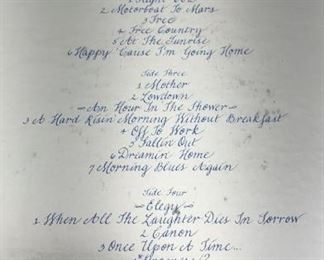 2 Motorboat To Mars
3 Free
4 Free Country
5 At The Sunrise
6 Happy 'Cause I'm Going Home
Side Three
1 Mother
2 Lowdown
~An Hour In The Shower~
3 A Hard Risin' Morning Without Breakfast
4 Off To Work
5 Fallin' Out
6 Dreamin' Home
7 Morning Blues Again
Side Four
~Elegy~
1 When All The Laughter Dies In Sorrow
2 Canon
3 Once Upon A Time...